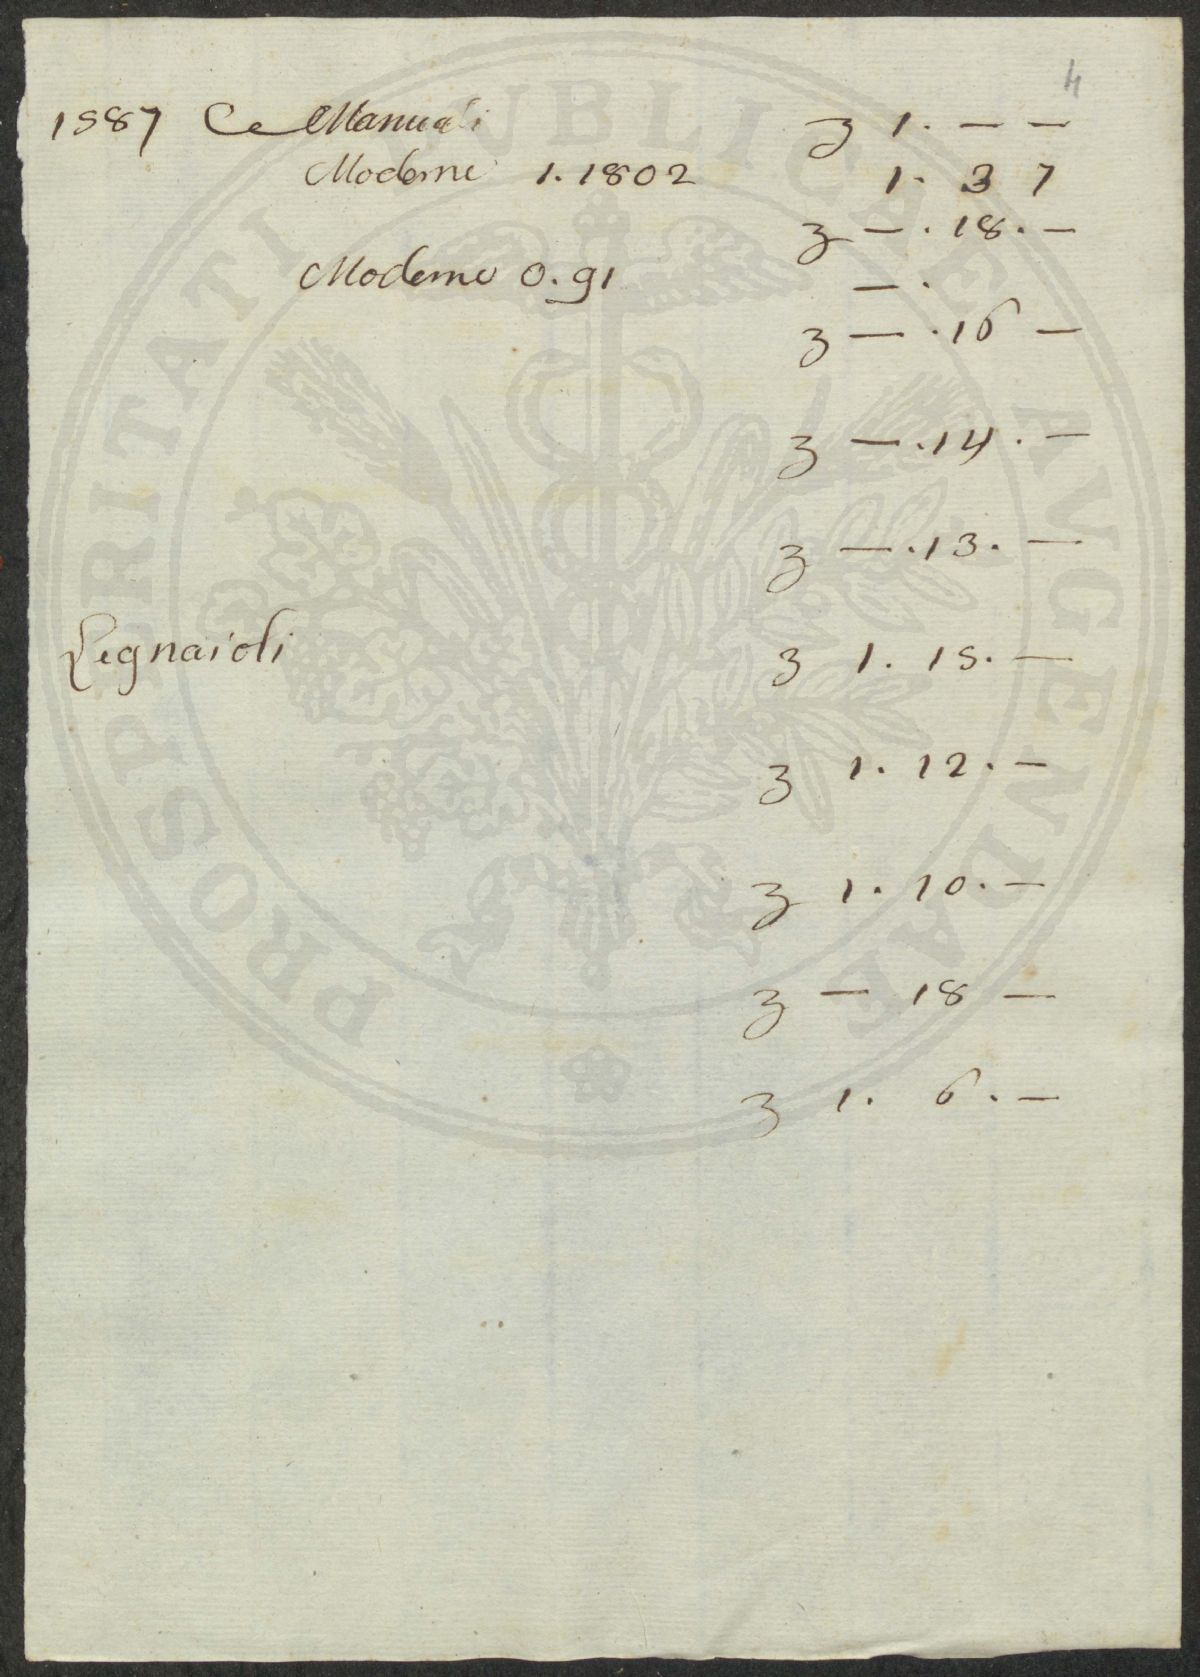 4
1587 Ce Manuali z 1. — —
Moderne 1.1802 1. 3 7
z — . 18. —
Moderne 0.91 — .
z — .16 —
z — .14. —
z — .13. —
Legnaioli z 1. 15. —
z 1. 12. —
z 1. 10. —
z — 18 —
z 1. 6. —
PROSPERITATI PUBLICAE AVGENDAE